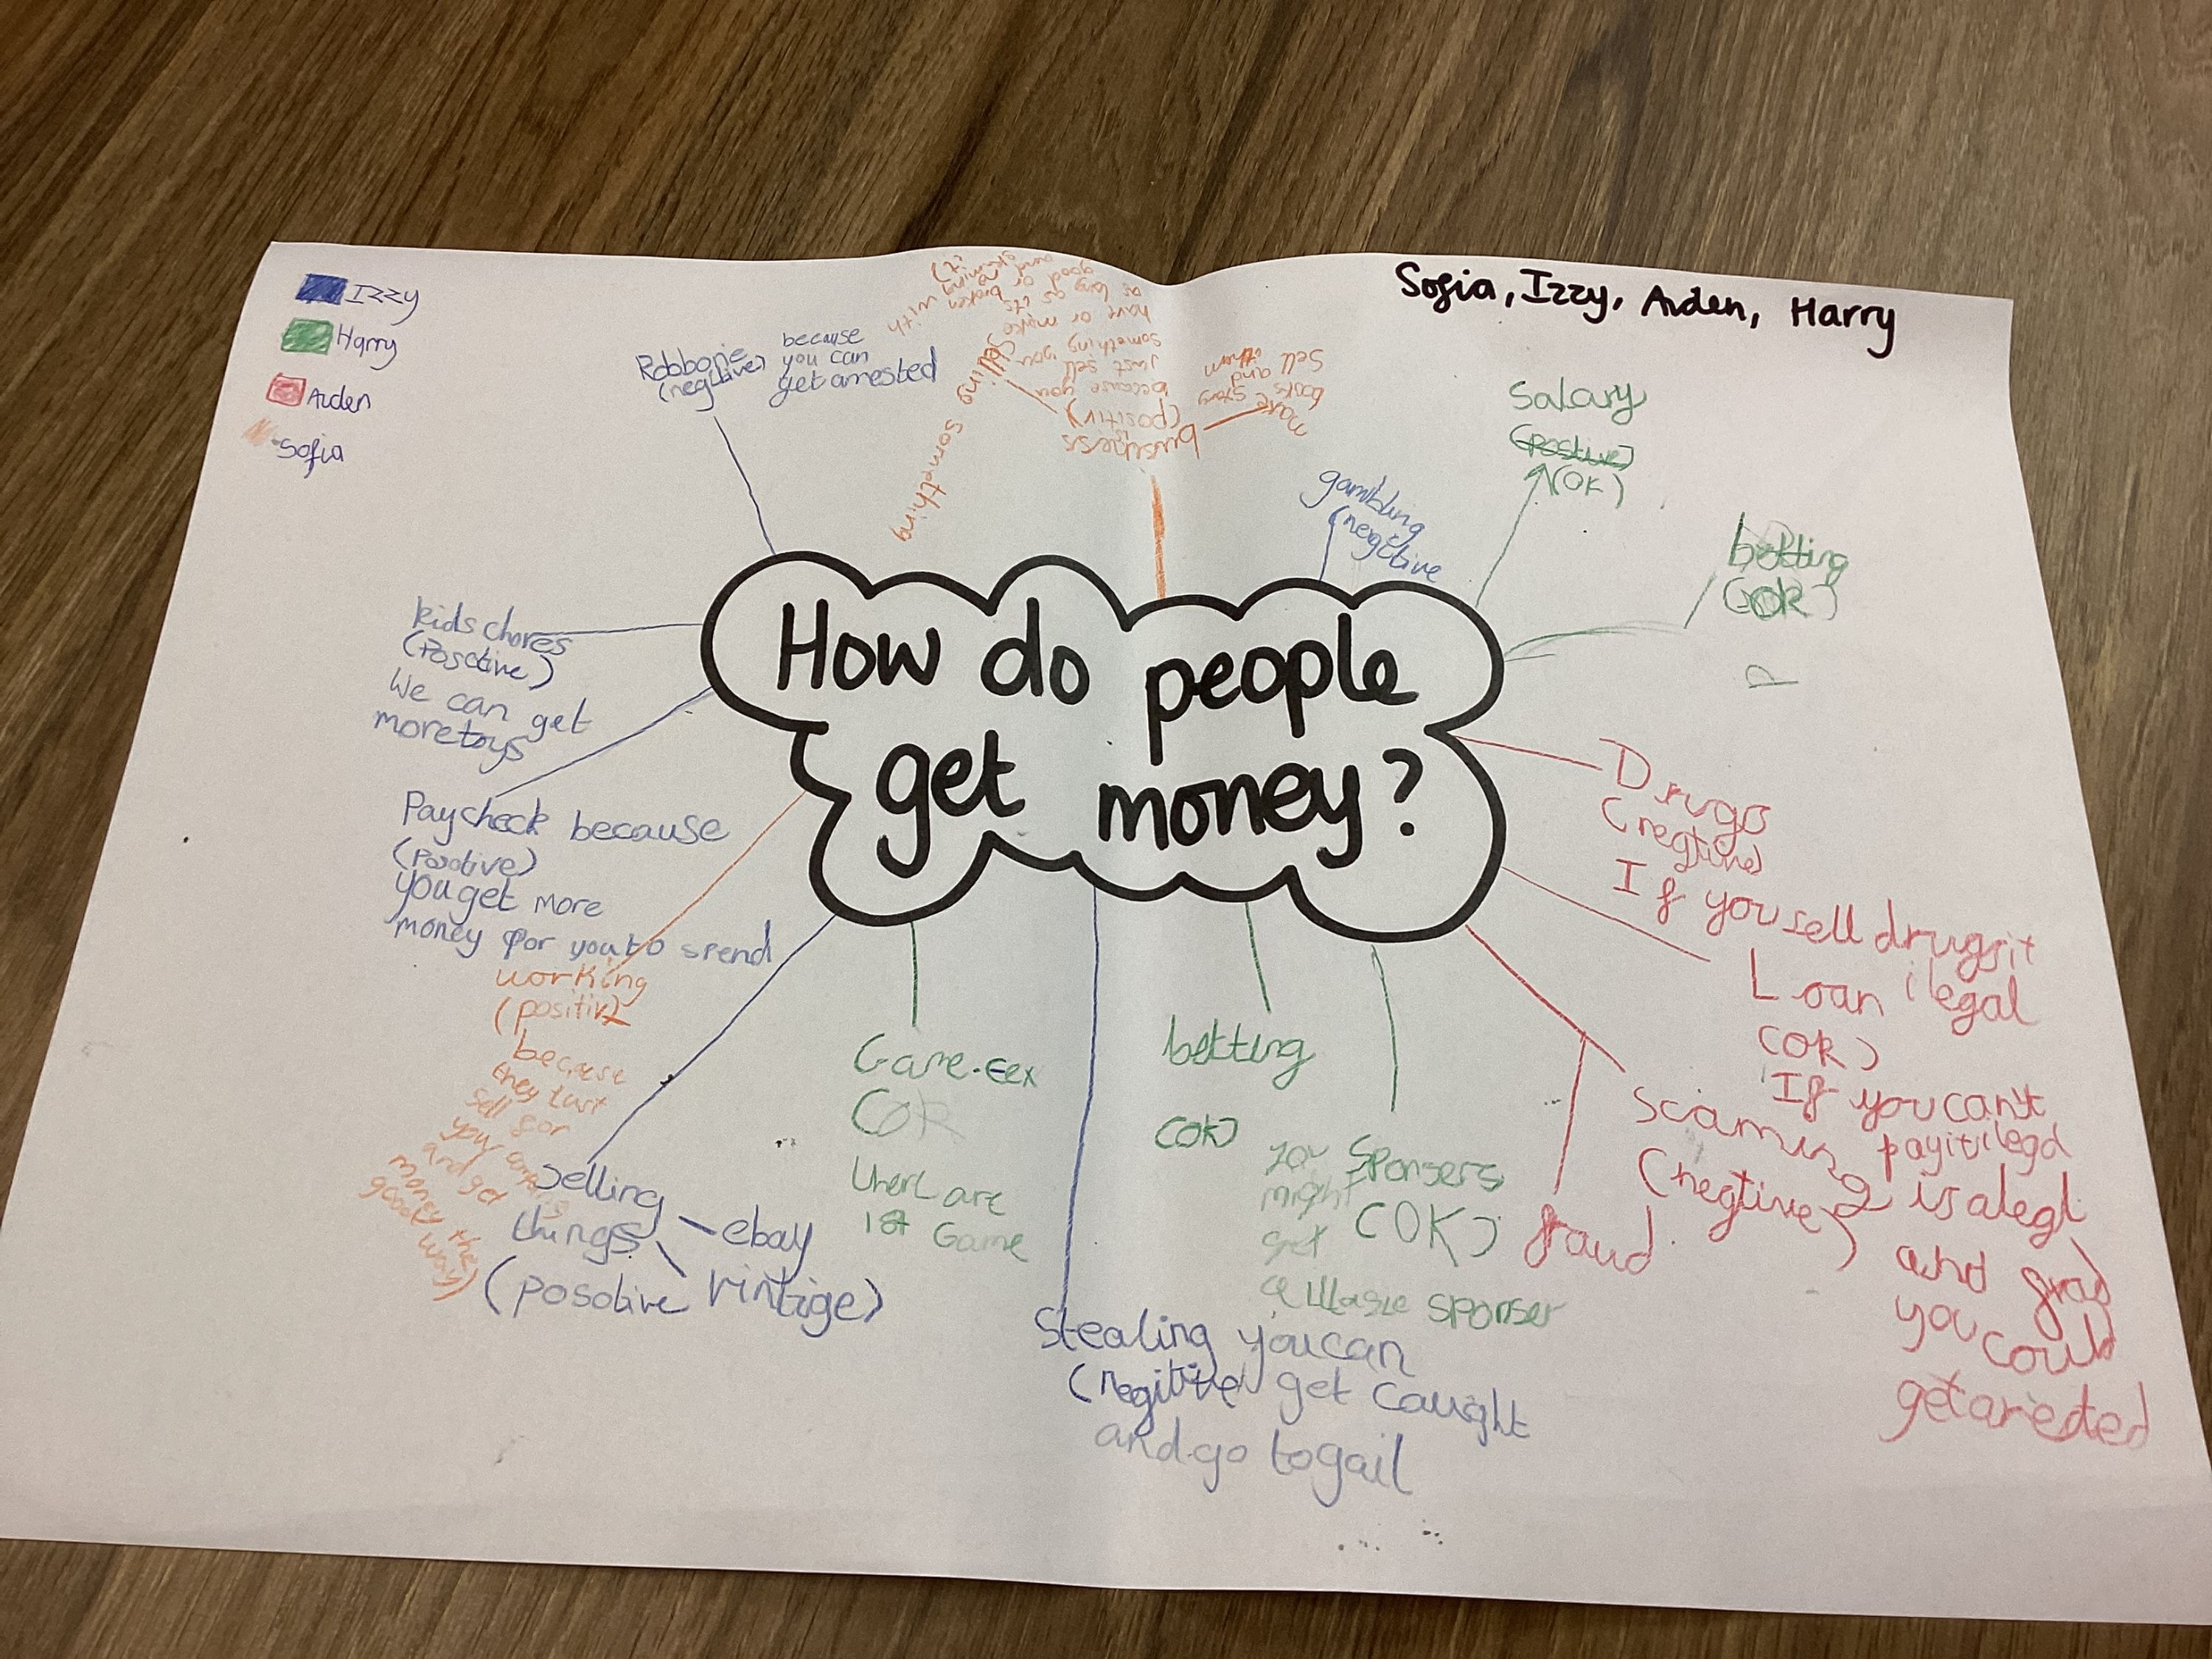 Sofia, Izzy, Aiden, Harry
Izzy
Harry
Aiden
Sofia
How do people
get money?
Robborie
(negitive)
because
you can
get arrested
Selling something
business
(positiv)
because you
just sell you
something
have or make
as long as its
good or broken
make story
books and
sell them
gambling
(negitive
Salary
(postive)
(OK)
betting
(OK)
P
kids chores
(Posotive)
We can get
more toys
Paycheck because
(Posotive)
you get more
money for you to spend
working
(positiv)
because
they just
sell for
your
and get
money the
good way)
selling
things
ebay
vintige)
(posotive
Game-eex
(OR
1st Game
betting
(OK)
Sponsers
(OK)
you
might
get
sponser
Stealing you can
(negitive) get caught
and go to gail
Drugs
(negtive)
If you sell drugs it
ilegal
Loan
(OK)
If you can't
pay it ilegal
scaming
(negtive)
is alegl
fraud
and
you could
get arested